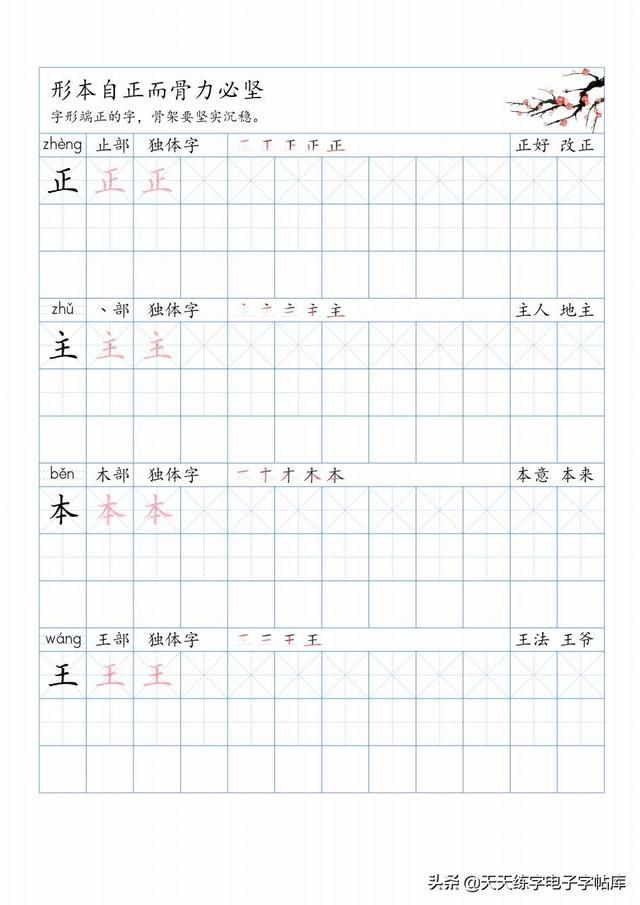 形本自正而骨力必坚
字形端正的字，骨架要坚实沉稳。
zhèng 止部 独体字 一 丅 下 正 正 正好 改正
正 正 正
zhǔ 丶部 独体字 丶 亠 三 主 主 主人 地主
主 主 主
běn 木部 独体字 一 十 才 木 本 本意 本来
本 本 本
wáng 王部 独体字 一 二 干 王 王法 王爷
王 王 王
头条 @天天练字电子字帖库